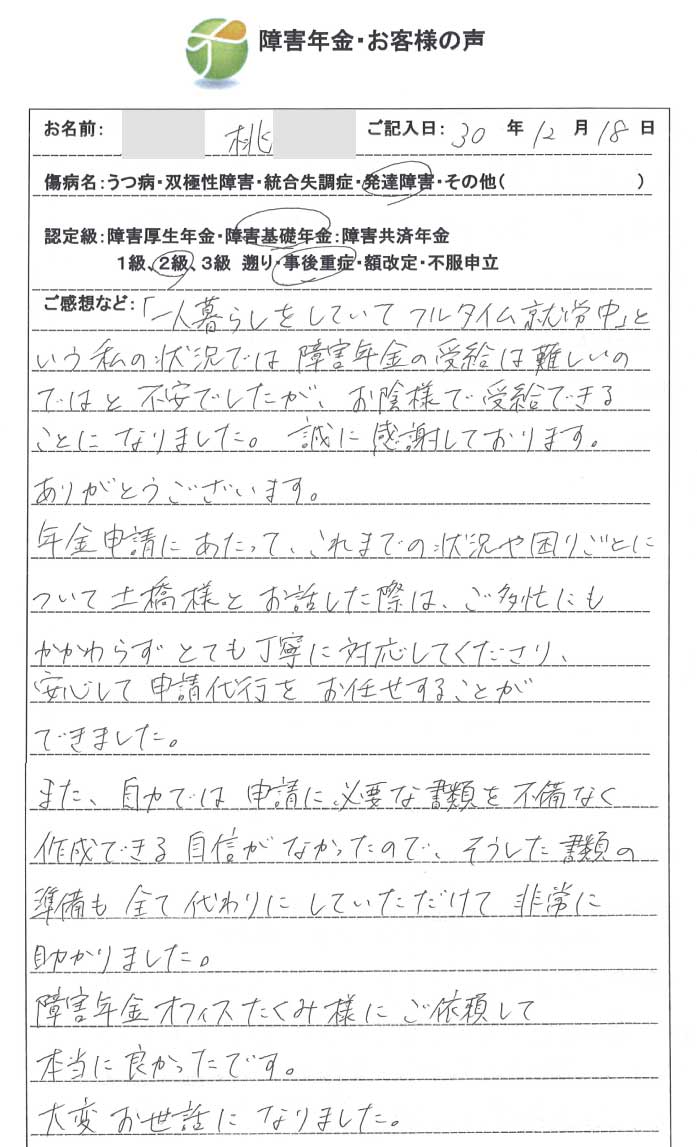 障害年金・お客様の声
お名前: 桃 ご記入日: 30 年 12 月 18 日
傷病名:うつ病・双極性障害・統合失調症・発達障害・その他( )
認定級:障害厚生年金・障害基礎年金:障害共済年金
1級、2級、3級 遡り・事後重症・額改定・不服申立
ご感想など:「一人暮らしをしていてフルタイム就労中」と
いう私の状況では障害年金の受給は難しいの
ではと不安でしたが、お陰様で受給できる
ことになりました。誠に感謝しております。
ありがとうございます。
年金申請にあたって、これまでの状況や困りごとに
ついて土橋様とお話した際は、ご多忙にも
かかわらずとても丁寧に対応してくださり、
安心して申請代行をお任せすることが
できました。
また、自力では申請に必要な書類を不備なく
作成できる自信がなかったので、そうした書類の
準備も全て代わりにしていただけて非常に
助かりました。
障害年金オフィスたくみ様にご依頼して
本当に良かったです。
大変お世話になりました。